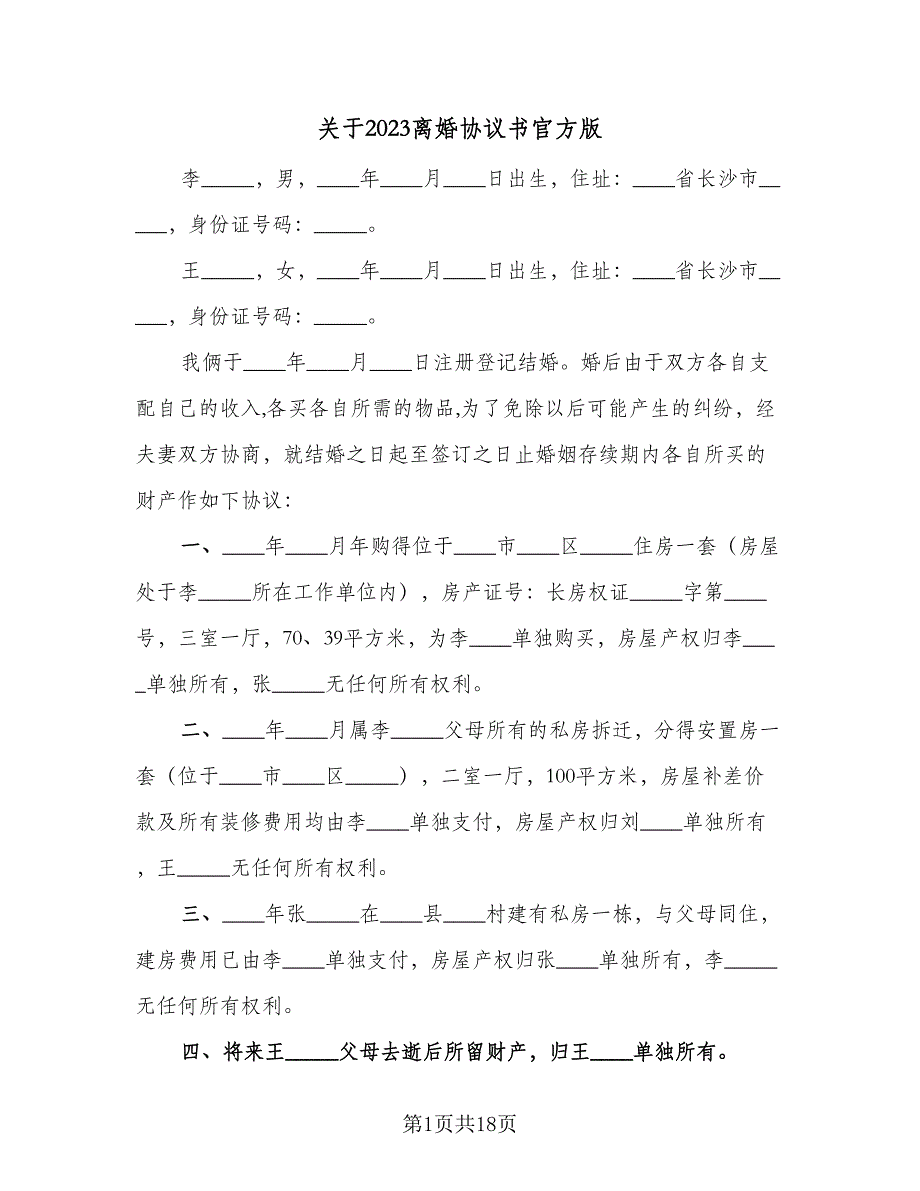 关于2023离婚协议书官方版
李_____，男，____年____月____日出生，住址：____省长沙市__
___，身份证号码：_____。
王_____，女，____年____月____日出生，住址：____省长沙市__
___，身份证号码：_____。
我俩于____年____月____日注册登记结婚。婚后由于双方各自支
配自己的收入,各买各自所需的物品,为了免除以后可能产生的纠纷，经
夫妻双方协商，就结婚之日起至签订之日止婚姻存续期内各自所买的
财产作如下协议：
一、____年____月年购得位于____市____区_____住房一套（房屋
处于李_____所在工作单位内），房产证号：长房权证_____字第____
号，三室一厅，70、39平方米，为李____单独购买，房屋产权归李___
_单独所有，张_____无任何所有权利。
二、____年____月属李_____父母所有的私房拆迁，分得安置房一
套（位于____市____区_____），二室一厅，100平方米，房屋补差价
款及所有装修费用均由李____单独支付，房屋产权归刘____单独所有
，王_____无任何所有权利。
三、____年张_____在____县____村建有私房一栋，与父母同住，
建房费用已由李____单独支付，房屋产权归张____单独所有，李_____
无任何所有权利。
四、将来王_____父母去逝后所留财产，归王____单独所有。
第1页共18页